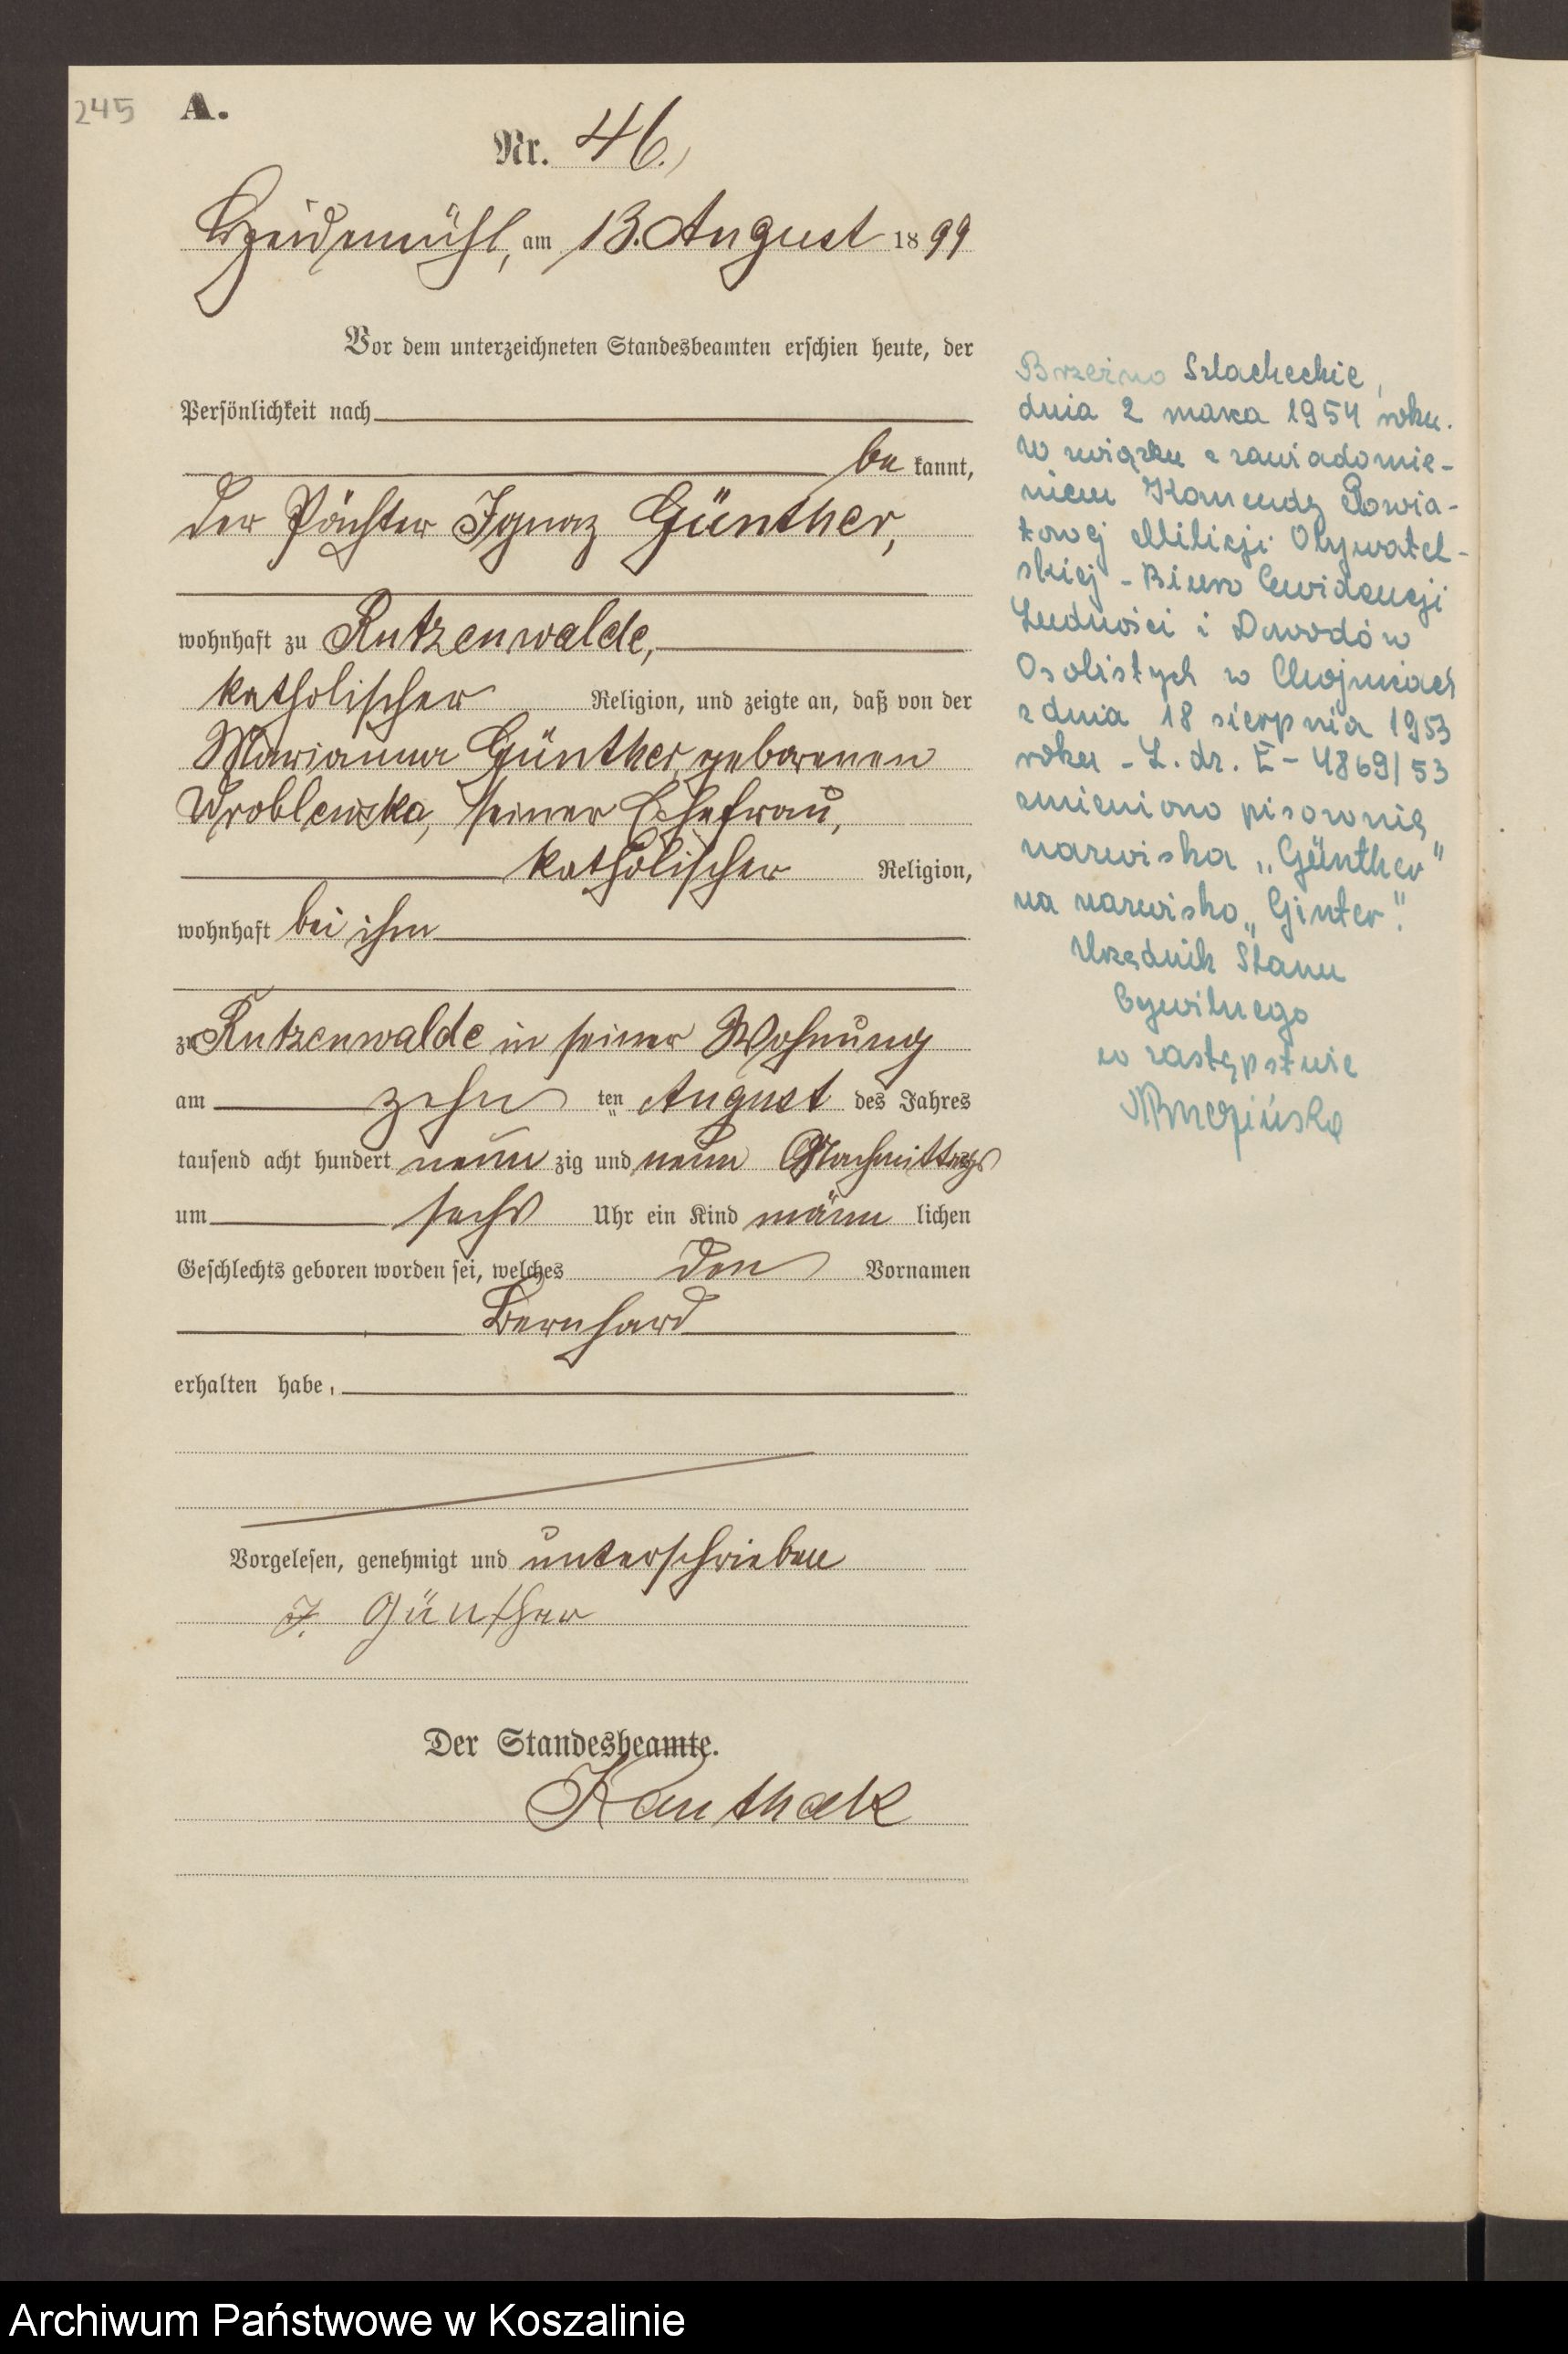 245 A.
Nr. 46.
Heidemühl, am 13. August 1899
Vor dem unterzeichneten Standesbeamten erschien heute, der
Persönlichkeit nach
be kannt,
der Pächter Ignaz Günther,
wohnhaft zu Rutzenwalde,
katholischer Religion, und zeigte an, daß von der
Marianna Günther, geborenen
Wroblewska, seiner Ehefrau,
katholischer Religion,
wohnhaft bei ihm
zu Rutzenwalde in seiner Wohnung
am zehn ten August des Jahres
tausend acht hundert neun zig und neun Nachmittags
um sechs Uhr ein Kind männ lichen
Geschlechts geboren worden sei, welches den Vornamen
Bernhard
erhalten habe,
Vorgelesen, genehmigt und unterschrieben
J. Günther
Der Standesbeamte.
Kanthak
Brzeźno Szlacheckie,
dnia 2 marca 1954 roku.
W związku z zawiadomie-
niem Komendy Powia-
towej Milicji Obywatel-
skiej - Biuro Ewidencji
Ludności i Dowodów
Osobistych w Chojnicach
z dnia 18 sierpnia 1953
roku - L. dz. E - 4869/53
zmieniono pisownię
nazwiska „Günther"
na nazwisko „Ginter".
Urzędnik Stanu
Cywilnego
w zastępstwie
Archiwum Państwowe w Koszalinie